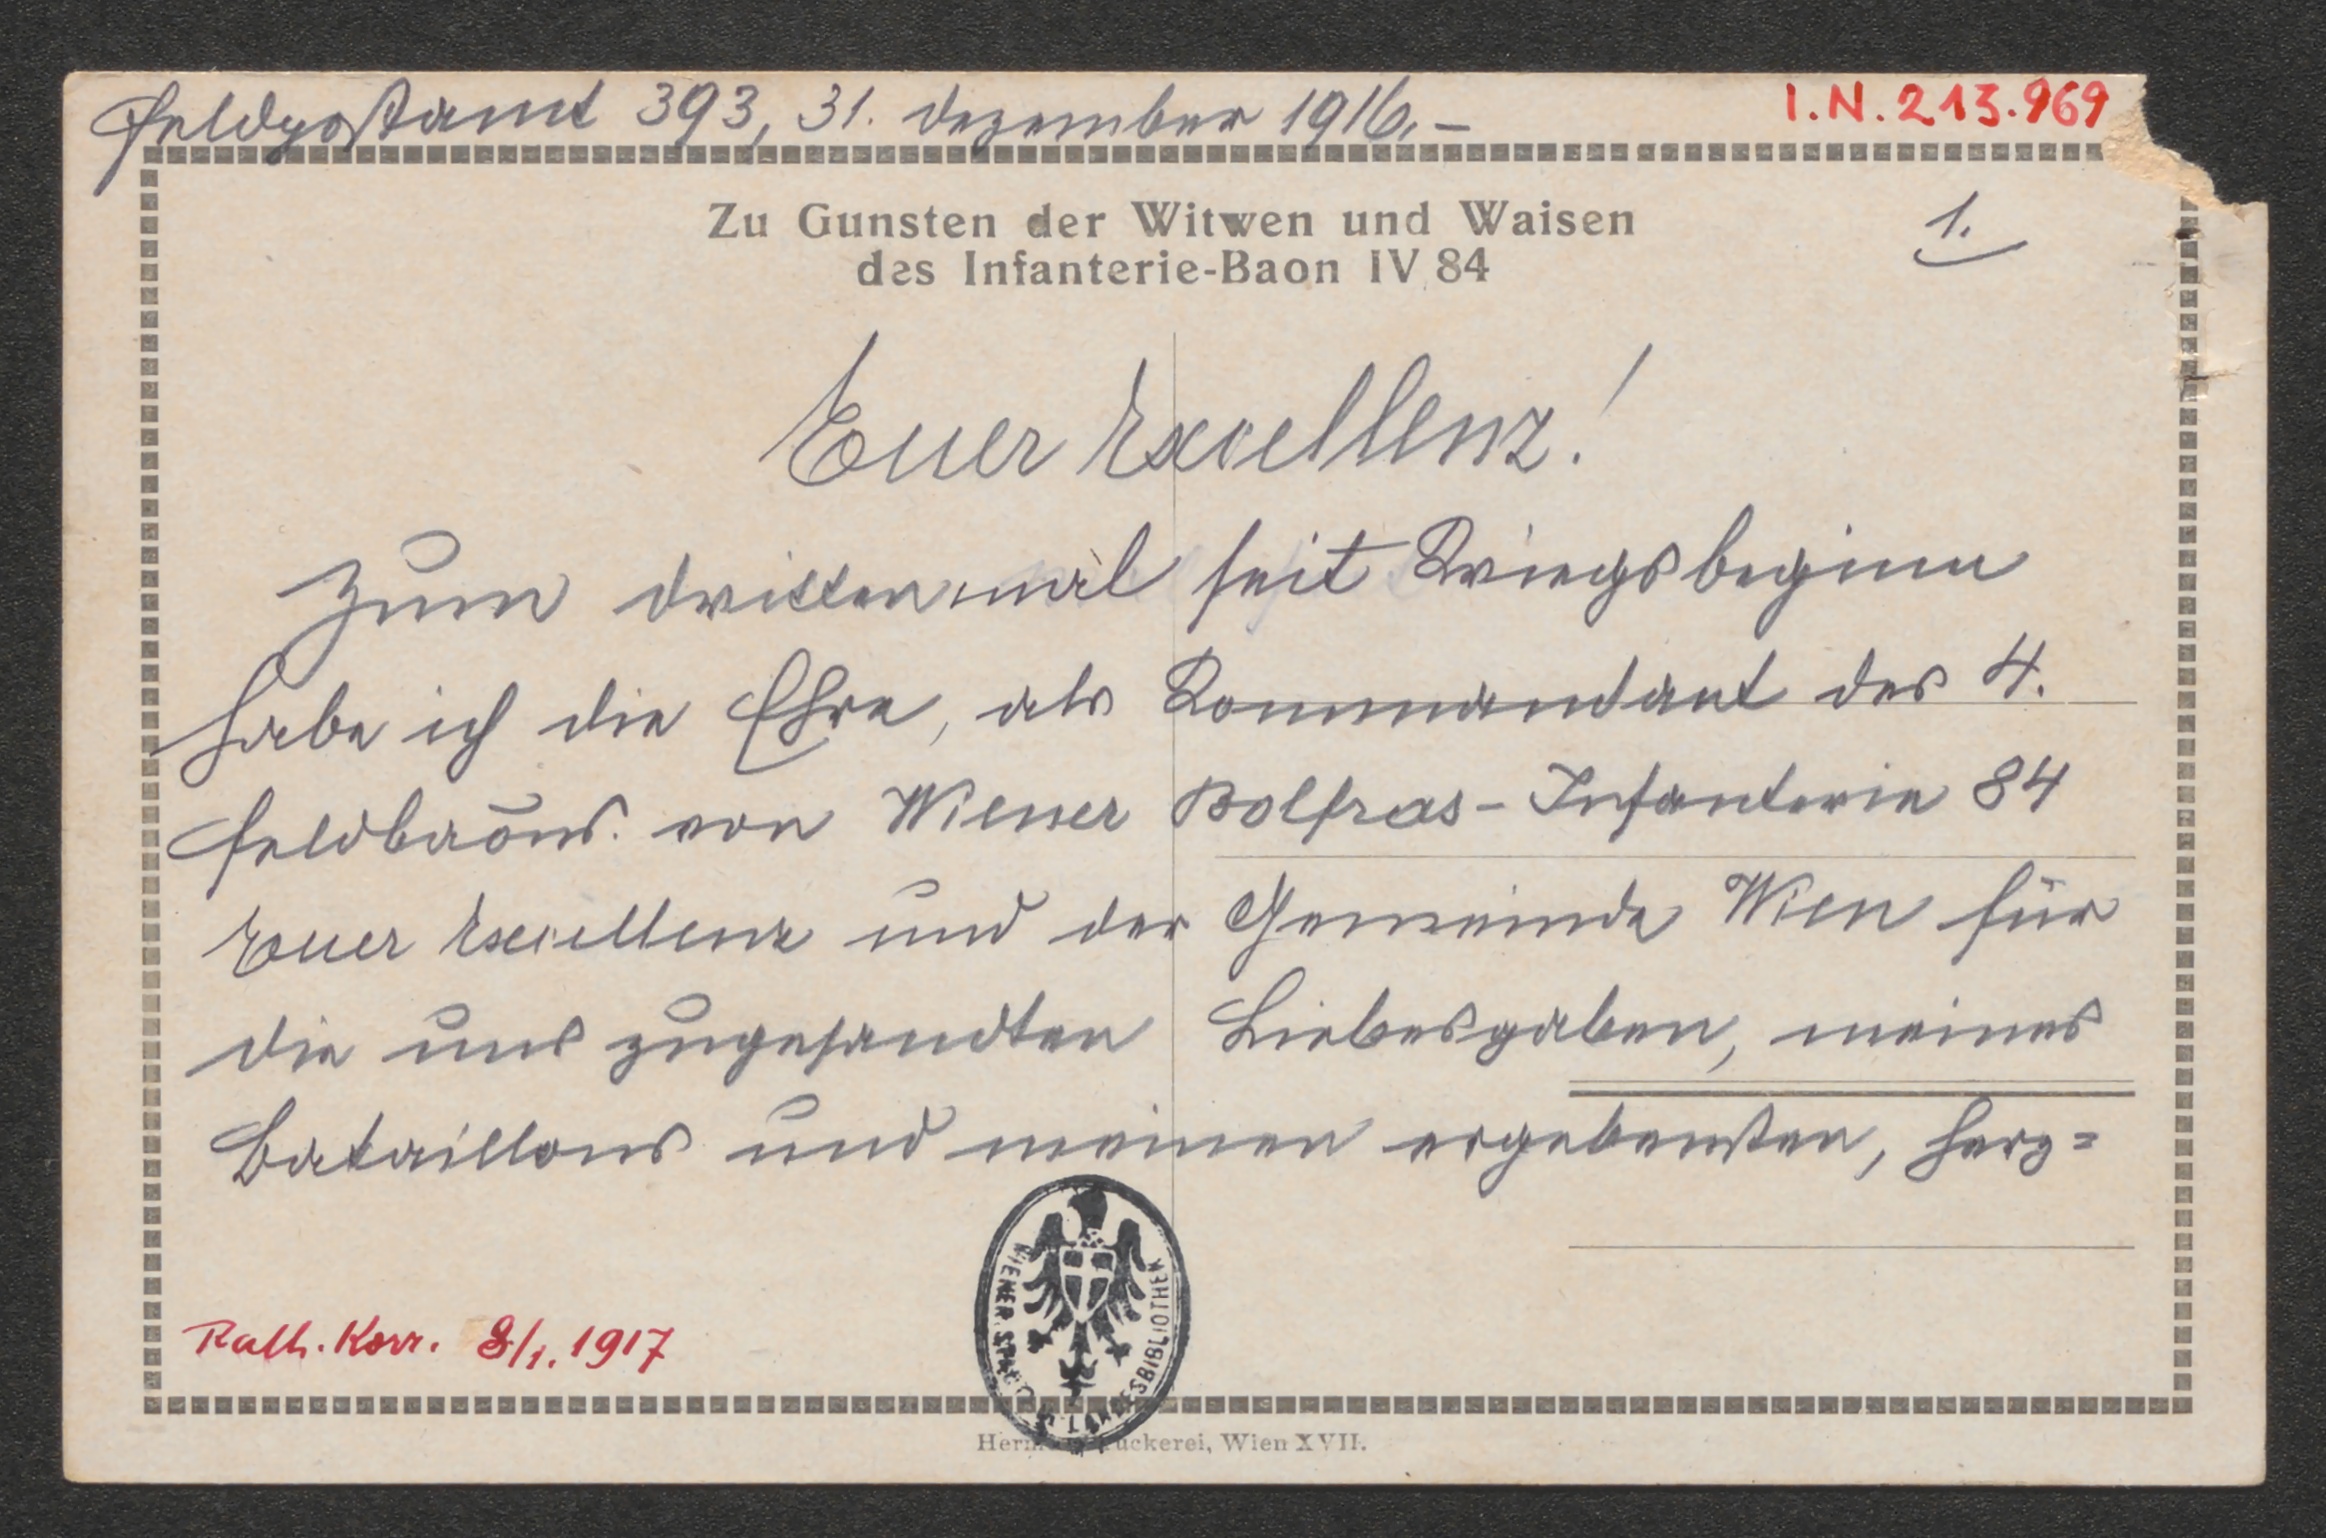 Feldpostamt 393, 31. Dezember 1916.–
I.N. 213.969
Zu Gunsten der Witwen und Waisen
des Infanterie-Baon IV 84
1.
Euer Excellenz!
Zum drittenmal seit Kriegsbeginn
habe ich die Ehre, als Kommandant des 4.
Feldbaons. von Wiener Bolfras-Infanterie 84
Euer Excellenz und der Gemeinde Wien für
die uns zugesandten Liebesgaben, meines
Bataillons und meinen ergebensten, herz=
WIENER STADT- U. LANDESBIBLIOTHEK
Rath. Korr. 8/1. 1917
Herm. Druckerei, Wien XVII.